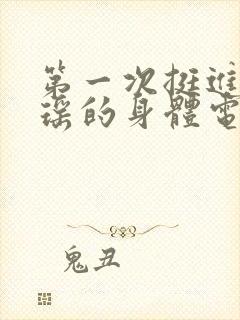 第一次挺進
瑶的身體電
鬼丑